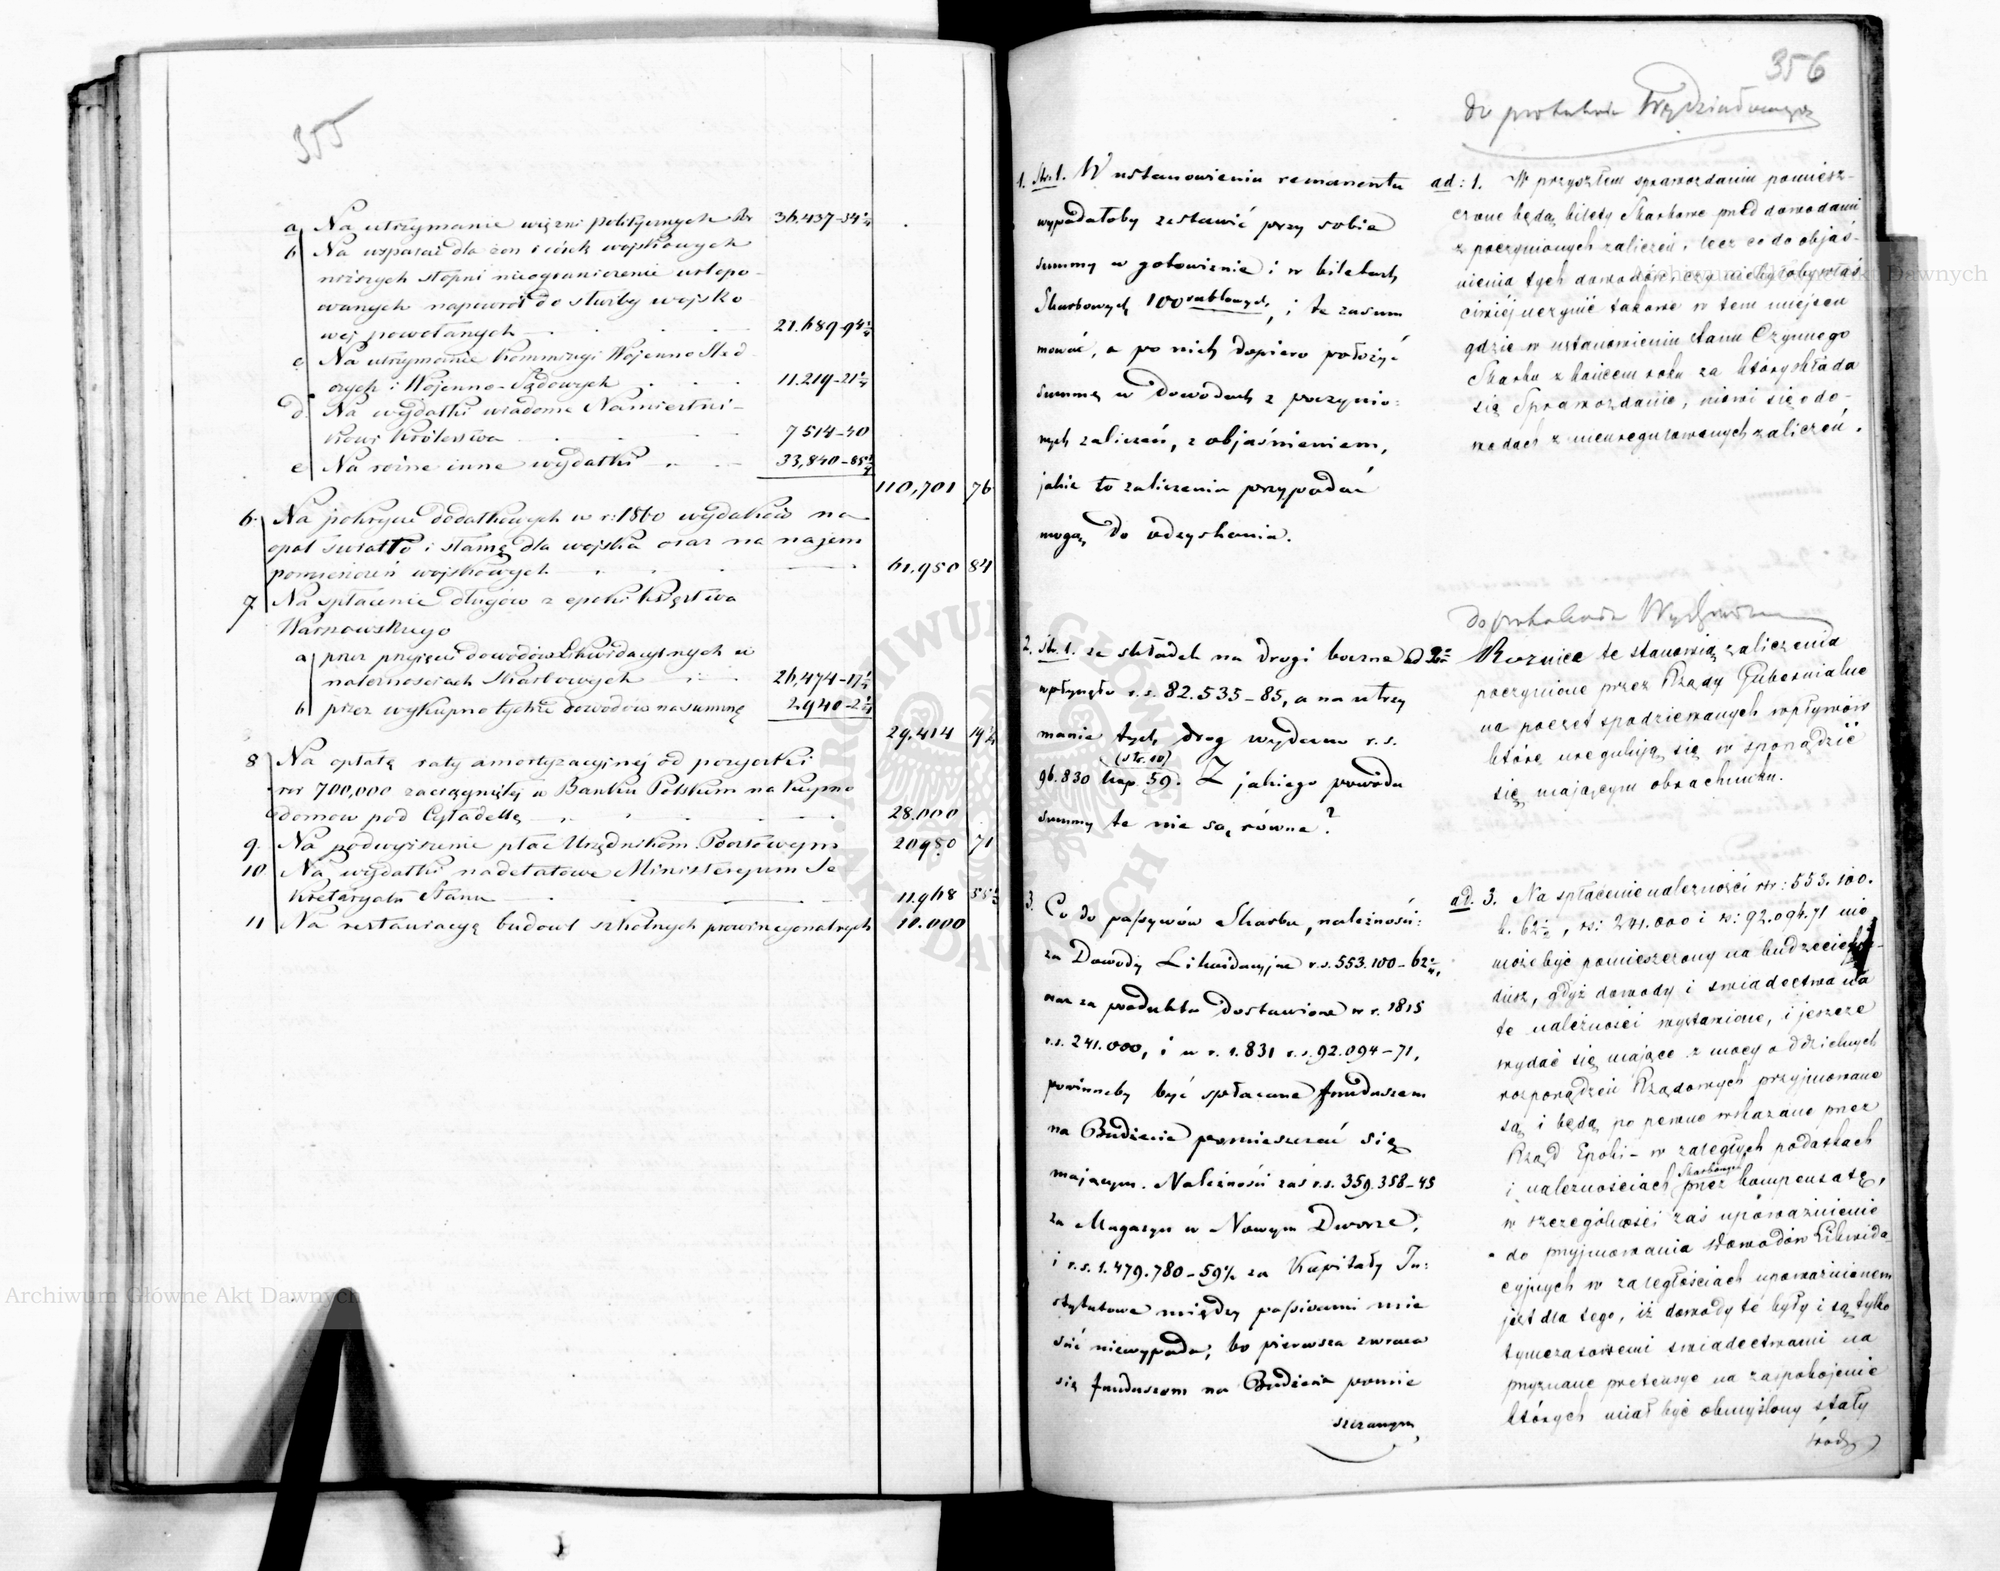 355
a Na utrzymanie więzni politycznych Rs 36,437-54½
b Na wsparcie dla żon i dzieci wojskowych
niższych stopni nieograniczenie urlopo-
wanych napowrót do służby wojsko
wej powołanych 21.689-94¾
c Na utrzymanie Kommissyi Wojenno Sled
czych i Wojenno-Sądowych 11.219-21¾
d Na wydatki wiadome Namiestni-
kowi Królestwa 7514-40
e Na różne inne wydatki 33,840-85½
110,701 76
6. Na pokrycie dodatkowych w r: 1860 wydatków na
opał światło i słomę dla wojska oraz na najem
pomieszczeń wojskowych 61.950 84
7. Na spłacenie długów z epoki Księstwa
Warszawskiego
a przez przyjęcie dowodów Likwidacyjnych w
należnościach Skarbowych 26,474-17½
b przez wykupno tychże dowodów na summę 2.940-2¼
29.414 19¾
8 Na opłatę raty amortyzacyjnej od pożyczki
rsr 700,000 zaciągniętej w Banku Polskim na kupno
domów pod Cytadellę 28.000
9. Na podwyższenie płac Urzędnikom Pocztowym 20980 71
10 Na wydatki nadetatowe Ministeryum Se
kretaryatu Stanu 11.968 55½
11 Na restauracyę budowl szkolnych prowincyonalnych 10.000
356
do protokołu Wydziałowego
1. Str. 1. W ustanowieniu remanentu
wypadałoby zestawić przy sobie
summy w gotowiznie i w biletach
Skarbowych 100 rublowych, i te zasum
mować, a po nich dopiero położyć
summę w Dowodach z poczynio:
nych zaliczeń, z objaśnieniem,
jakie to zaliczenia przypadać
mogą do odzyskania.
ad: 1. W przyszłem sprawozdaniu pomiesz-
czone będą bilety Skarbowe przed dowodami
z poczynionych zaliczeń, lecz co do objaś-
nienia tych dowodów czy nie byłoby właś
ciwiéj uczynić takowe w tem miejscu
gdzie w ustanowieniu stanu Czynnego
Skarbu z końcem roku za który składa
się Sprawozdanie, mówi się o do-
wodach z nieuregulowanych zaliczeń.
2. Str. 1. ze składek na drogi boczne
wpłynęło r.s. 82.535-85, a na utrzy
manie tych dróg wydano r.s.
(str. 10)
96.830 kop. 59. Z jakiego powodu
summy te nie są równe?
do protokołu Wydziałowego
ad 2 Różnice te stanowią zaliczenia
poczynione przez Rządy Gubernialne
na poczet spodziewanych wpływów
które uregulują się w sporządzić
się mającym obrachunku.
3. Co do passywów Skarbu, należnoś:
za Dowody Likwidacyjne r.s. 553.100-62½,
oraz za produkta dostawione w r. 1815
r.s. 241.000, i w r. 1.831 r.s. 92.094-71,
powinneby być spłacane funduszem
na Budżecie pomieszczać się
mającym. Należność zaś r.s. 359.358-45
za Magazyn w Nowym Dworze,
i r.s. 1.479.780-59½ za Kapitały In:
stytutowe między passivami mie
ścić niewypada, bo pierwsza zwraca
się funduszem na Budżecie pomie
szczanym,
ad. 3. Na spłacenie należności rsr: 553.100.
k. 62½, rs: 241.000 i rs: 92.094.71 nie
może być pomieszczony na budżecie fun-
dusz, gdyż dowody i świadectwa na
te należności wystawione, i jeszcze
wydać się mające z mocy oddzielnych
rozporządzeń Rządowych przyjmowane
są i będą po pewne wskazane przez
Rząd Epoki - w zaległych podatkach
i należnościach Skarbowych przez kompensatę,
w szczególności zaś upoważnienie
do przyjmowania Dowodów Likwida
cyjnych w zaległościach upoważnionem
jest dla tego, iż dowody te były i są tylko
tymczasowemi świadectwami na
przyznane pretensye na zaspokojenie
których miał być obmyślony stały
środ